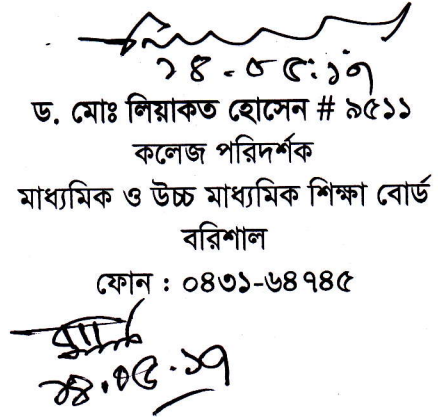 ২৪.০৫.১৭
ড. মোঃ লিয়াকত হোসেন # ৯৫১১
কলেজ পরিদর্শক
মাধ্যমিক ও উচ্চ মাধ্যমিক শিক্ষা বোর্ড
বরিশাল
ফোন : ০৪৩১-৬৪৭৪৫
২৪.০৫.১৭